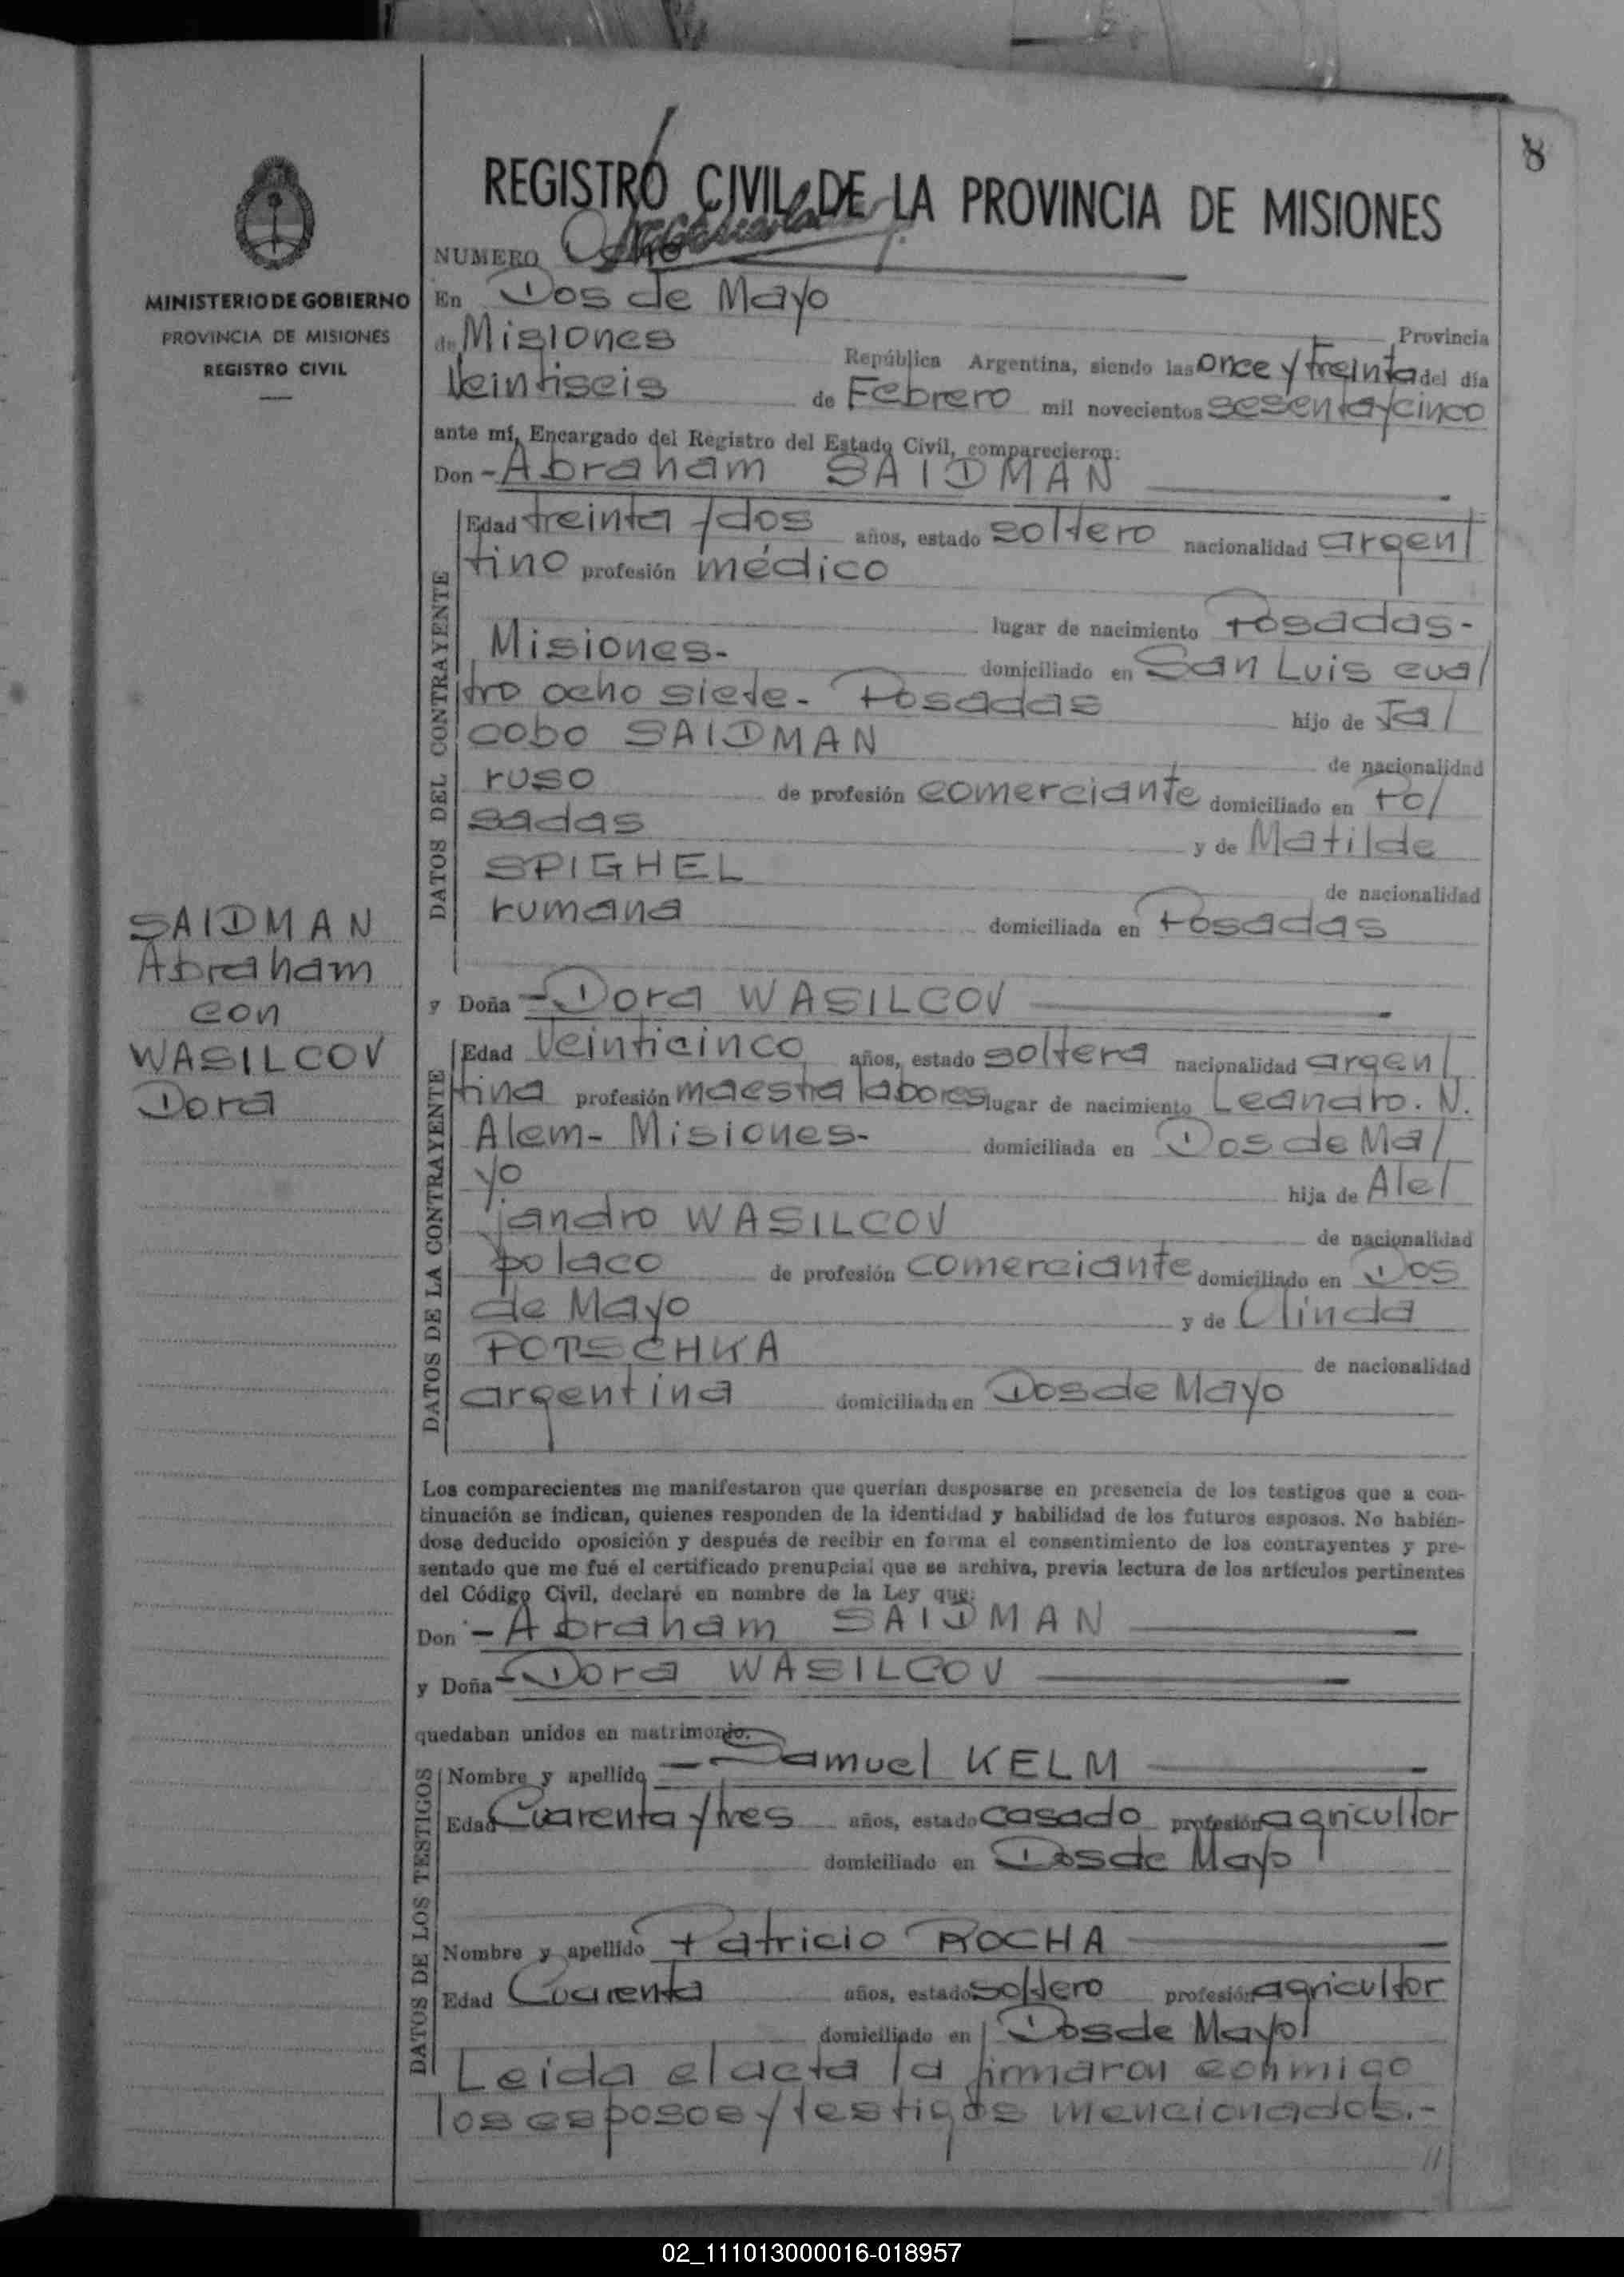 8
REGISTRO CIVIL DE LA PROVINCIA DE MISIONES
MINISTERIO DE GOBIERNO
PROVINCIA DE MISIONES
REGISTRO CIVIL
NUMERO Ocho
En Dos de Mayo
Provincia
de Misiones República Argentina, siendo las once y treinta del día
Veintiseis de Febrero mil novecientos sesenta y cinco
ante mí, Encargado del Registro del Estado Civil, comparecieron:
Don - Abraham SAIDMAN
DATOS DEL CONTRAYENTE
Edad treinta y dos años, estado soltero nacionalidad argen/
tino profesión médico
lugar de nacimiento Posadas-
Misiones- domiciliado en San Luis cua/
tro ocho siete- Posadas hijo de Ja/
cobo SAIDMAN de nacionalidad
ruso de profesión comerciante domiciliado en Po/
sadas y de Matilde
SPIGHEL de nacionalidad
rumana domiciliada en Posadas
SAIDMAN
Abraham
con
WASILCOV
Dora
y Doña - Dora WASILCOV
DATOS DE LA CONTRAYENTE
Edad Veinticinco años, estado soltera nacionalidad argen/
tina profesión maestra labores lugar de nacimiento Leandro. N.
Alem- Misiones- domiciliada en Dos de Ma/
yo hija de Ale/
jandro WASILCOV de nacionalidad
polaco de profesión comerciante domiciliado en Dos
de Mayo y de Olinda
POTSCHKA de nacionalidad
argentina domiciliada en Dos de Mayo
Los comparecientes me manifestaron que querían desposarse en presencia de los testigos que a con-
tinuación se indican, quienes responden de la identidad y habilidad de los futuros esposos. No habién-
dose deducido oposición y después de recibir en forma el consentimiento de los contrayentes y pre-
sentado que me fué el certificado prenupcial que se archiva, previa lectura de los artículos pertinentes
del Código Civil, declaré en nombre de la Ley que:
Don - Abraham SAIDMAN
y Doña - Dora WASILCOV
quedaban unidos en matrimonio.
DATOS DE LOS TESTIGOS
Nombre y apellido - Samuel KELM
Edad Cuarenta y tres años, estado casado profesión agricultor
domiciliado en Dos de Mayo
Nombre y apellido Patricio ROCHA
Edad Cuarenta años, estado soltero profesión agricultor
domiciliado en Dos de Mayo
Leida el acta la firmaron conmigo
los esposos y testigos mencionados.-
//
02_111013000016-018957